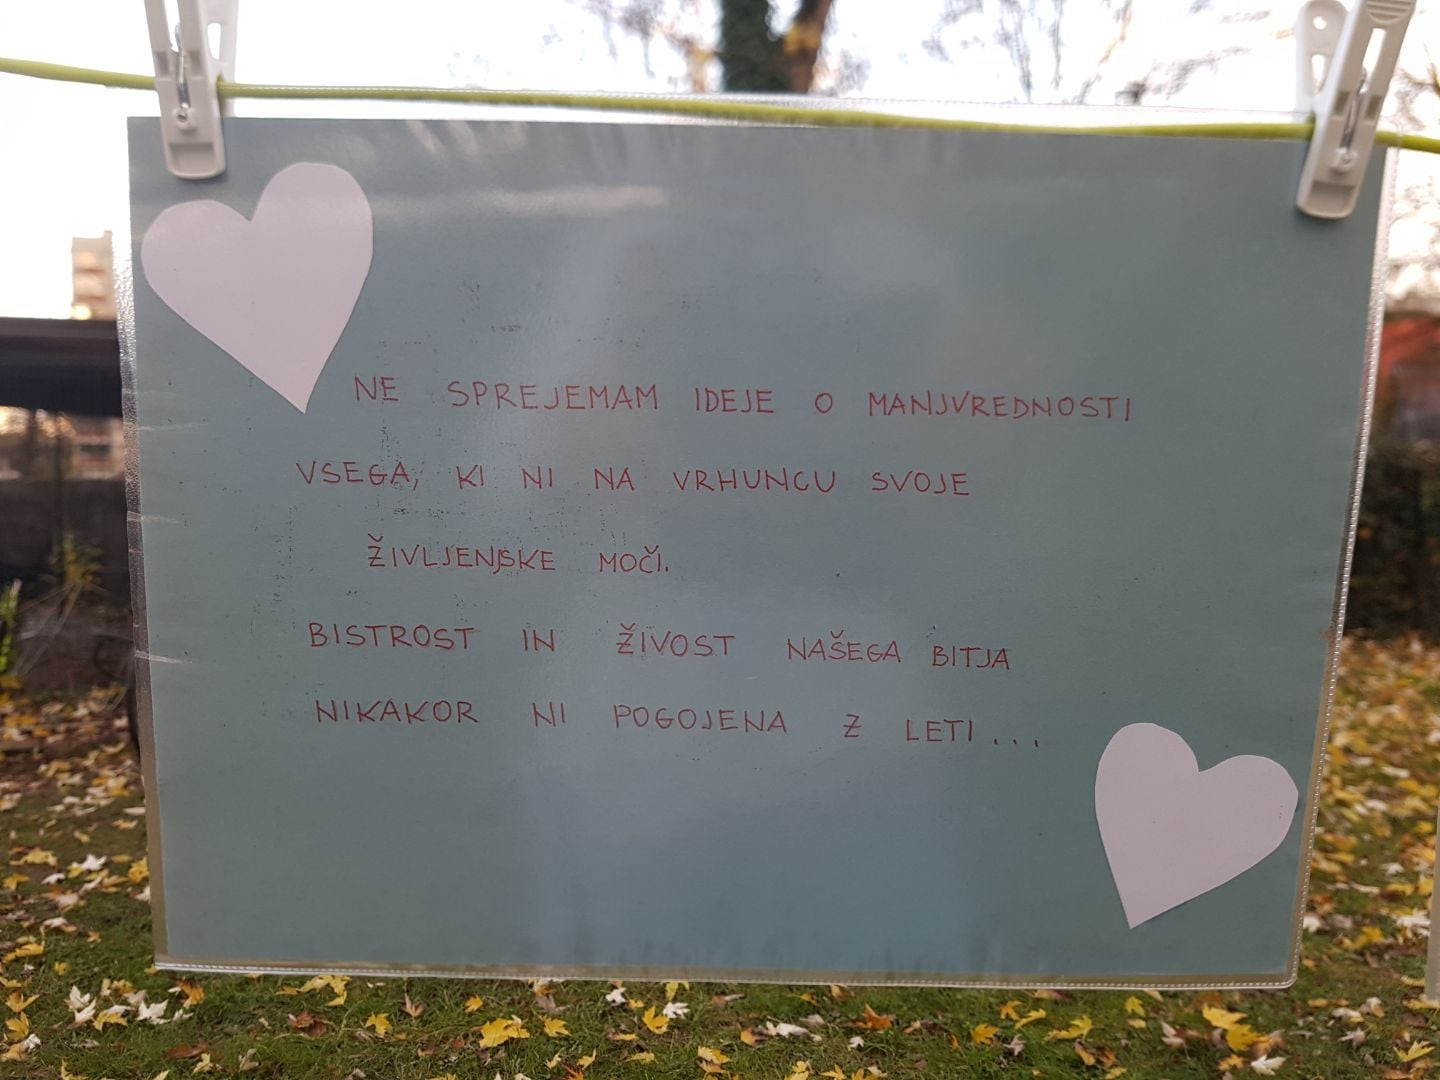 NE SPREJEMAM IDEJE O MANJVREDNOSTI
VSEGA, KI NI NA VRHUNCU SVOJE
ŽIVLJENJSKE MOČI.
BISTROST IN ŽIVOST NAŠEGA BITJA
NIKAKOR NI POGOJENA Z LETI...